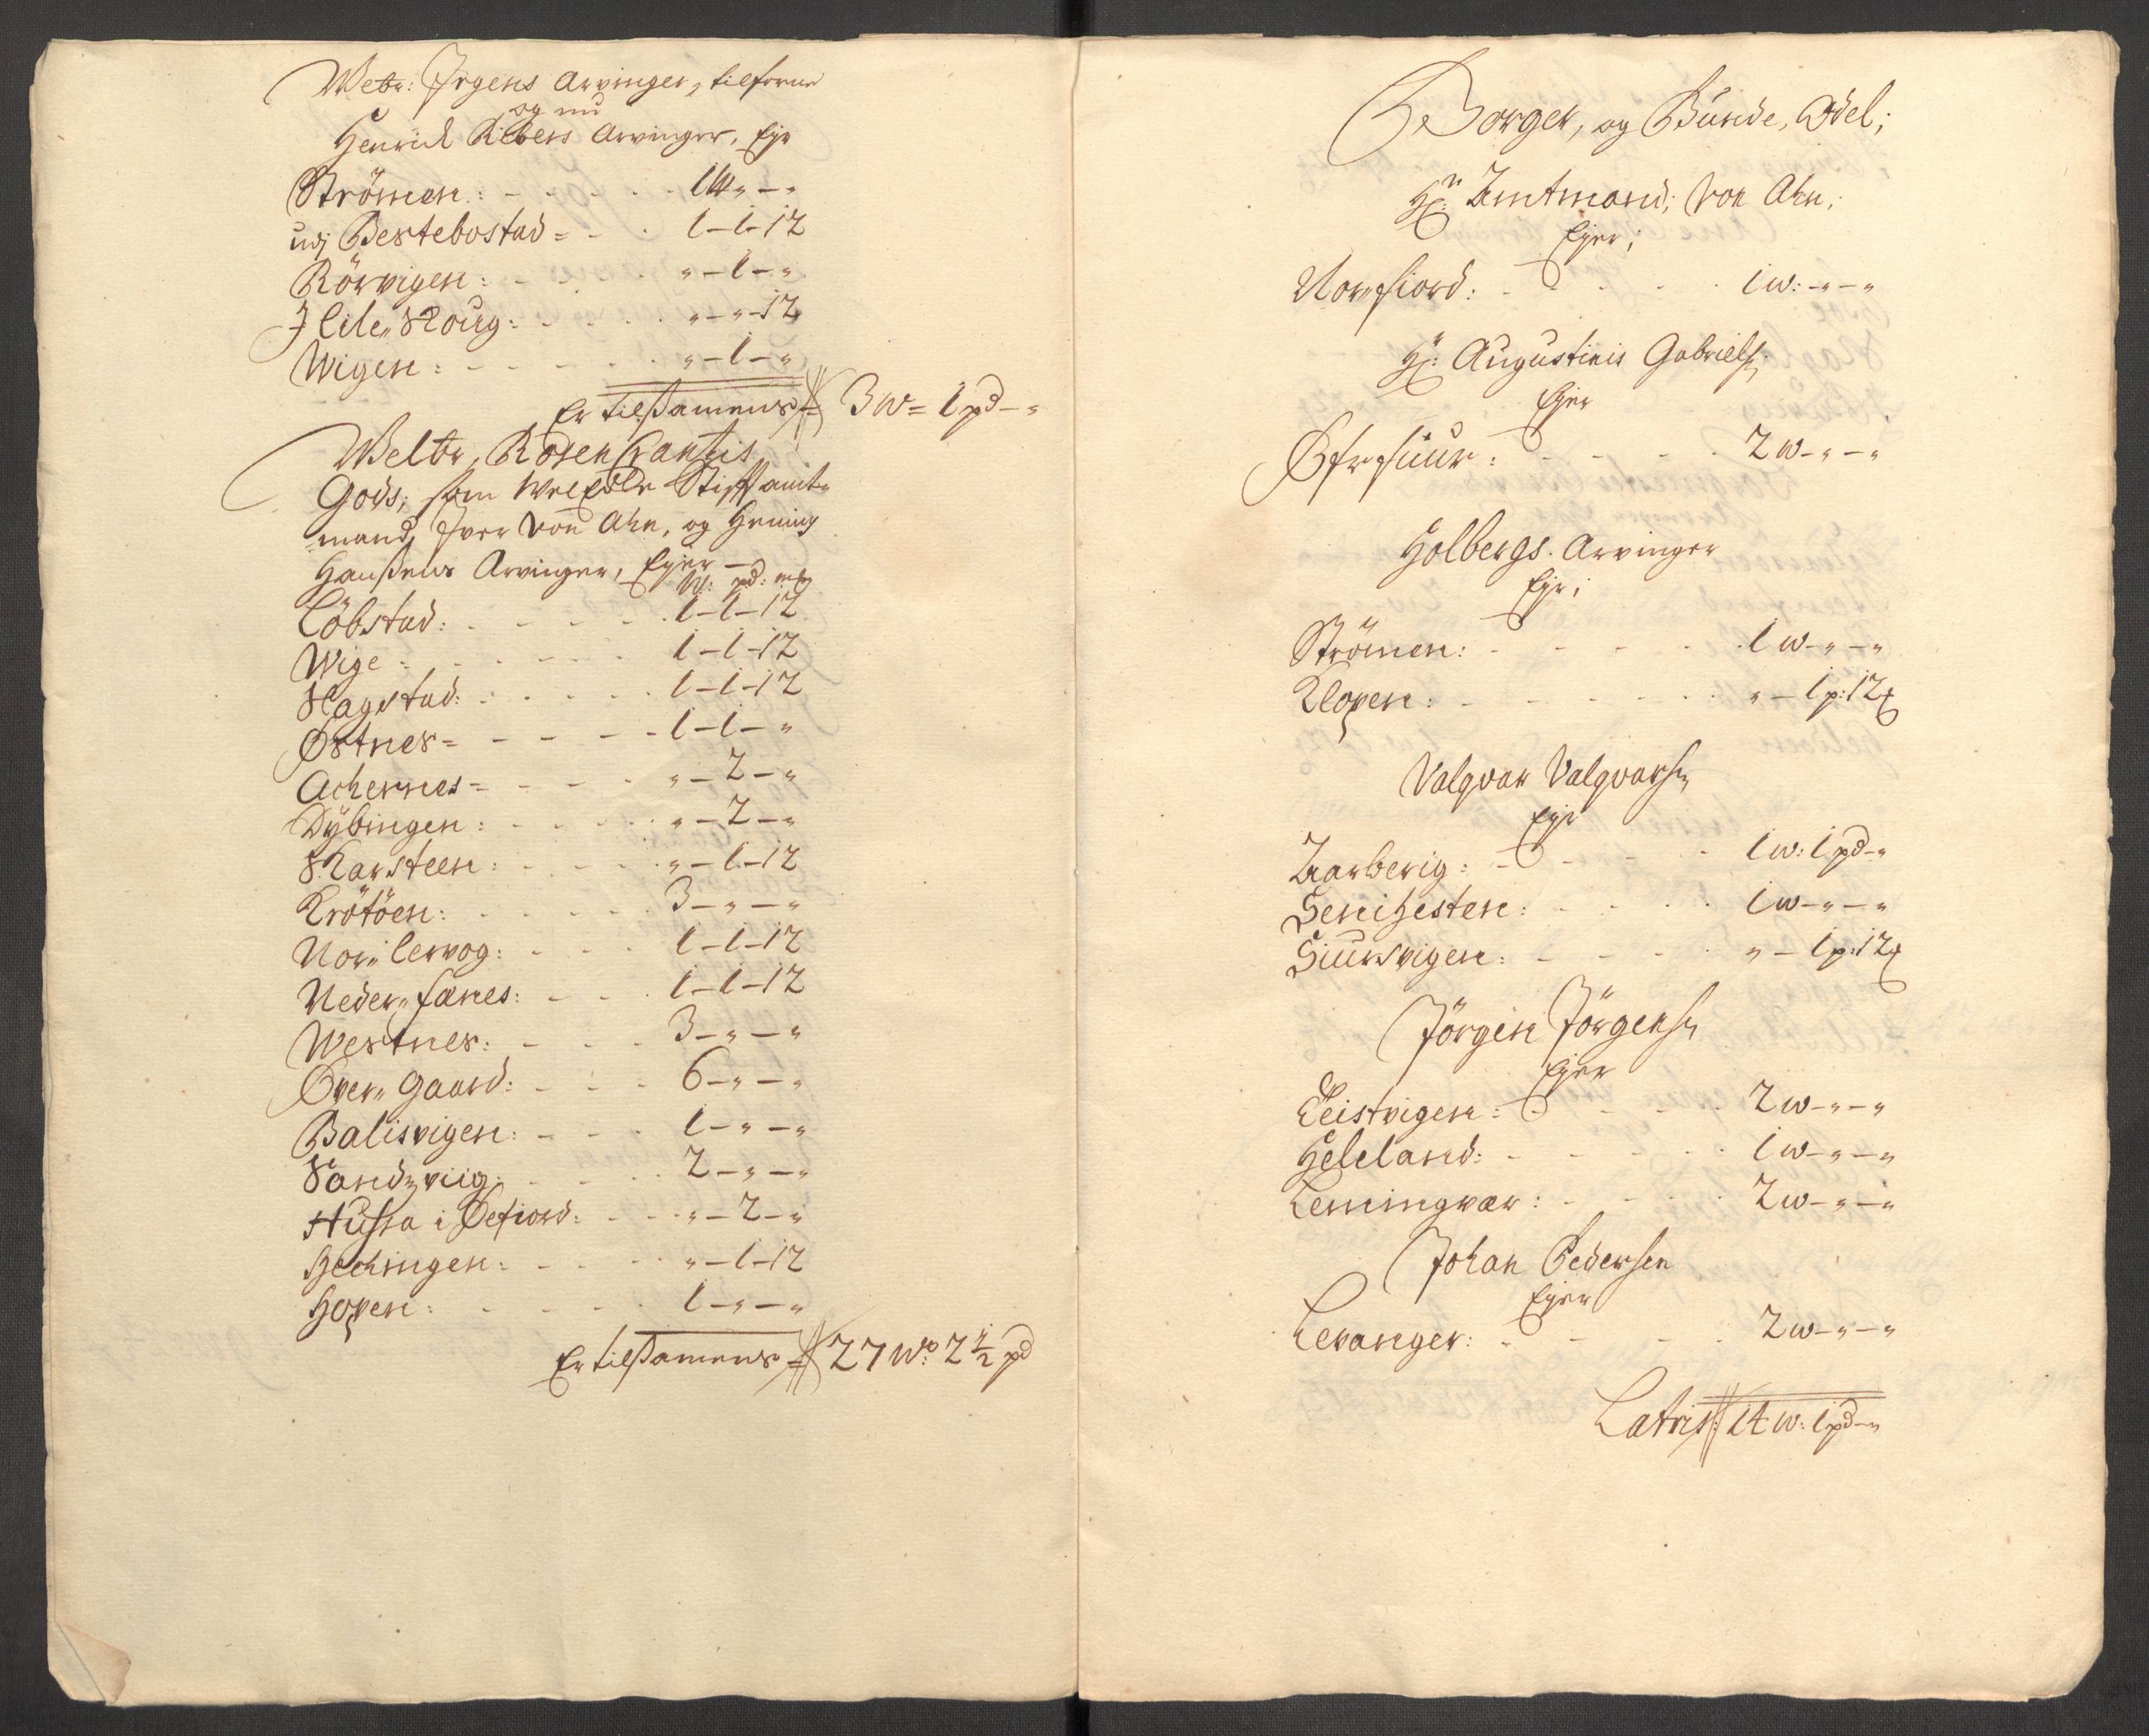 Welbr: Jrgens Arvinger, tilforne
og nu
Henrich Ribers Arvinger, Ejer
Strömen: - - - 1 W „ - „
udj Bestebostad = - - 1 - 1 - 12
Rörvigen: - - - „ - 1 - „
J lile„ Skoug: - - - „ - „ - 12
Wigen: - - - „ - 1 - „
Er tilsamens 3 w = 1 pd - „
Welbr, Rosen Crantzis
Gods; som Weledle Stifftamt-
mand, Jver von Ahn, og Hening
Hansens Arvinger, Ejer -
W: pd: mk
Löbstad: - - - 1 - 1 - 12
Wige - - - 1 - 1 - 12
Hagstad: - - - 1 - 1 - 12
Østnes = - - - 1 - 1 - „
Achernes = - - - „ - 2 - „
Dÿbingen: - - - „ - 2 - „
Skarsteen: - - - „ - 1 - 12
Krötöen: - - - 3 - „ - „
Nor„ Lervog: - - - 1 - 1 - 12
Neder„ fænes: - - - 1 - 1 - 12
Westnes: - - - 3 - „ - „
Øver„ Gaard: - - - 6 - „ - „
Balisvigen: - - - 1 - „ - „
Sandzviig: - - - 2 - „ - „
Hussa i Oefiord: - - - „ - 2 - „
Hechingen: - - - „ - 1 - 12
Hopen: - - - 1 - „ - „
Er tilsamens 27 W: 2 1/2 pd
Borger, og Bunde, Odel;
Hr: Amtmand; von Ahn;
Ejer;
Nor„ fiord: - - - 1 w: - „ - „
Hr: Augustinis Gabriels:
Ejer
Øfr fuur: - - - 2 w - „ - „
Holbergs. Arvinger
Ejer;
Strömen: - - - 1 w - „ - „
Klopen: - - - „ - 1 p: 12
Valqvar Valqvars:
Ejer
Aarberig: - - - 1 w: 1 pd - „
Senihesten: - - - 1 w - „ - „
Siursvigen: - - - „ - 1 p: 12
Jörgen Jörgens:
Ejer
Teistvigen: - - - 2 w - „ - „
Heleland: - - - 1 w - „ - „
Lemingvær: - - - 2 w - „ - „
Johan Pedersen
Ejer
Levanger: - - - 2 w - „ - „
Latris 14 w: 1 pd - „